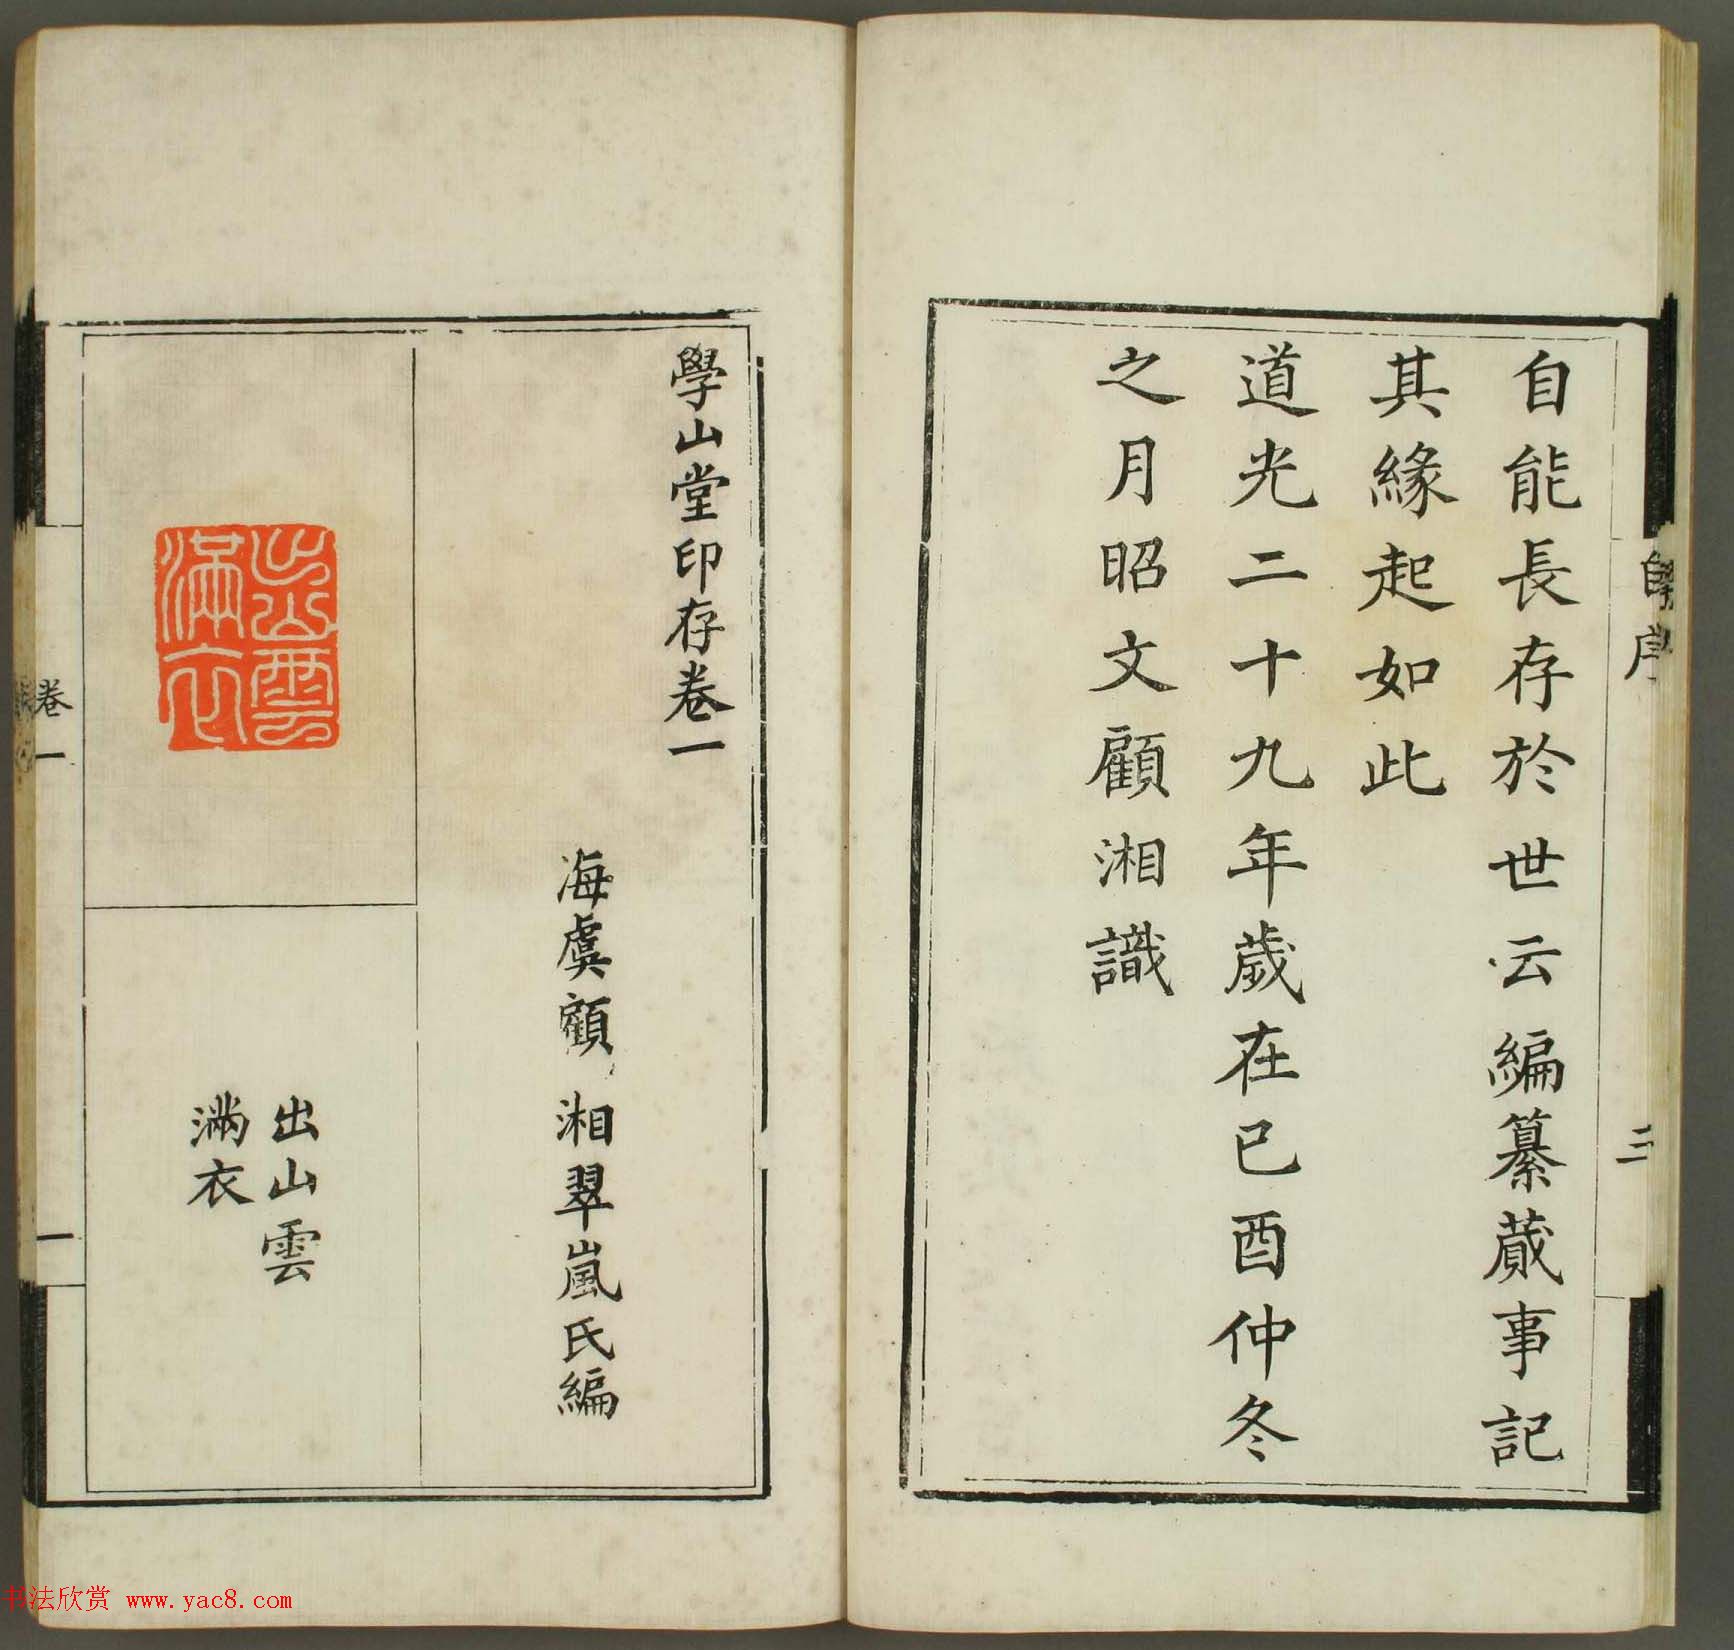 自能長存於世云編纂蕆事記
其緣起如此
道光二十九年歲在己酉仲冬
之月昭文顧湘識
自序
三
學山堂印存卷一
海虞顧湘翠嵐氏編
出山雲
滿衣
出山雲
滿衣
卷一
一
书法欣赏 www.yac8.com